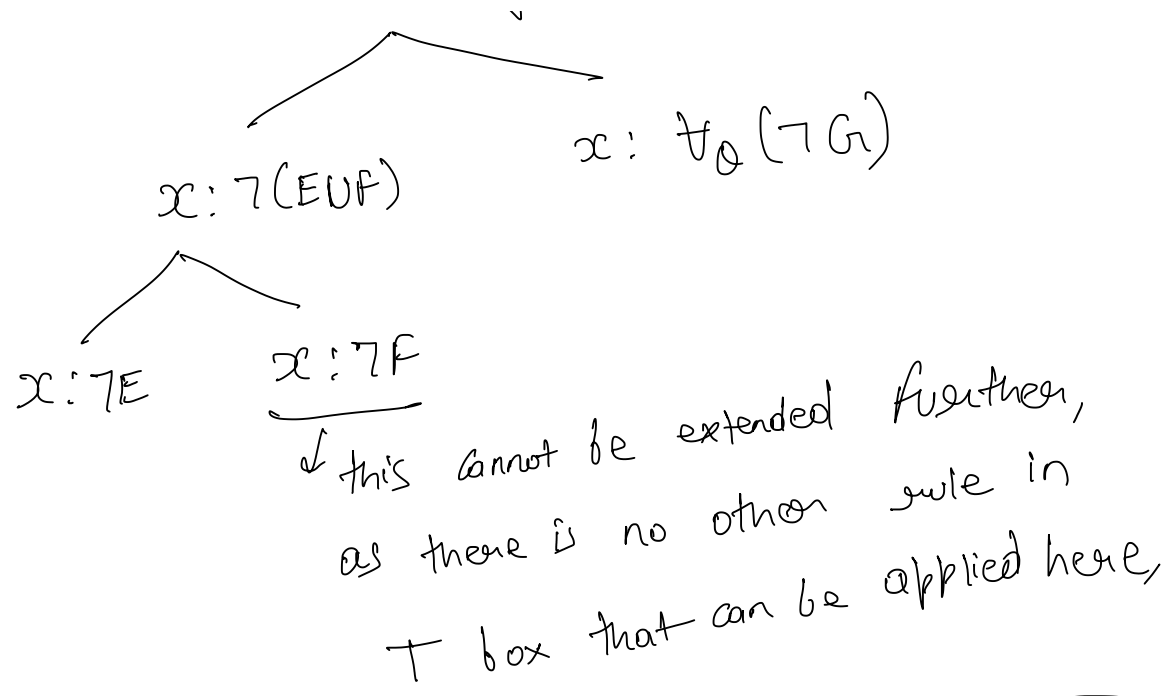 x: ∀Q(¬G)
x: ¬(EUF)
x: ¬E
x: ¬F
this cannot be extended further,
as there is no other rule in
T box that can be applied here,